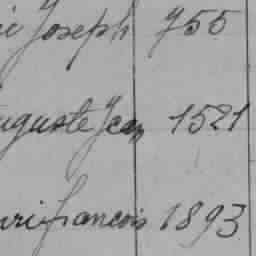 Joseph 755
Auguste Jean 1521
Henri francois 1893